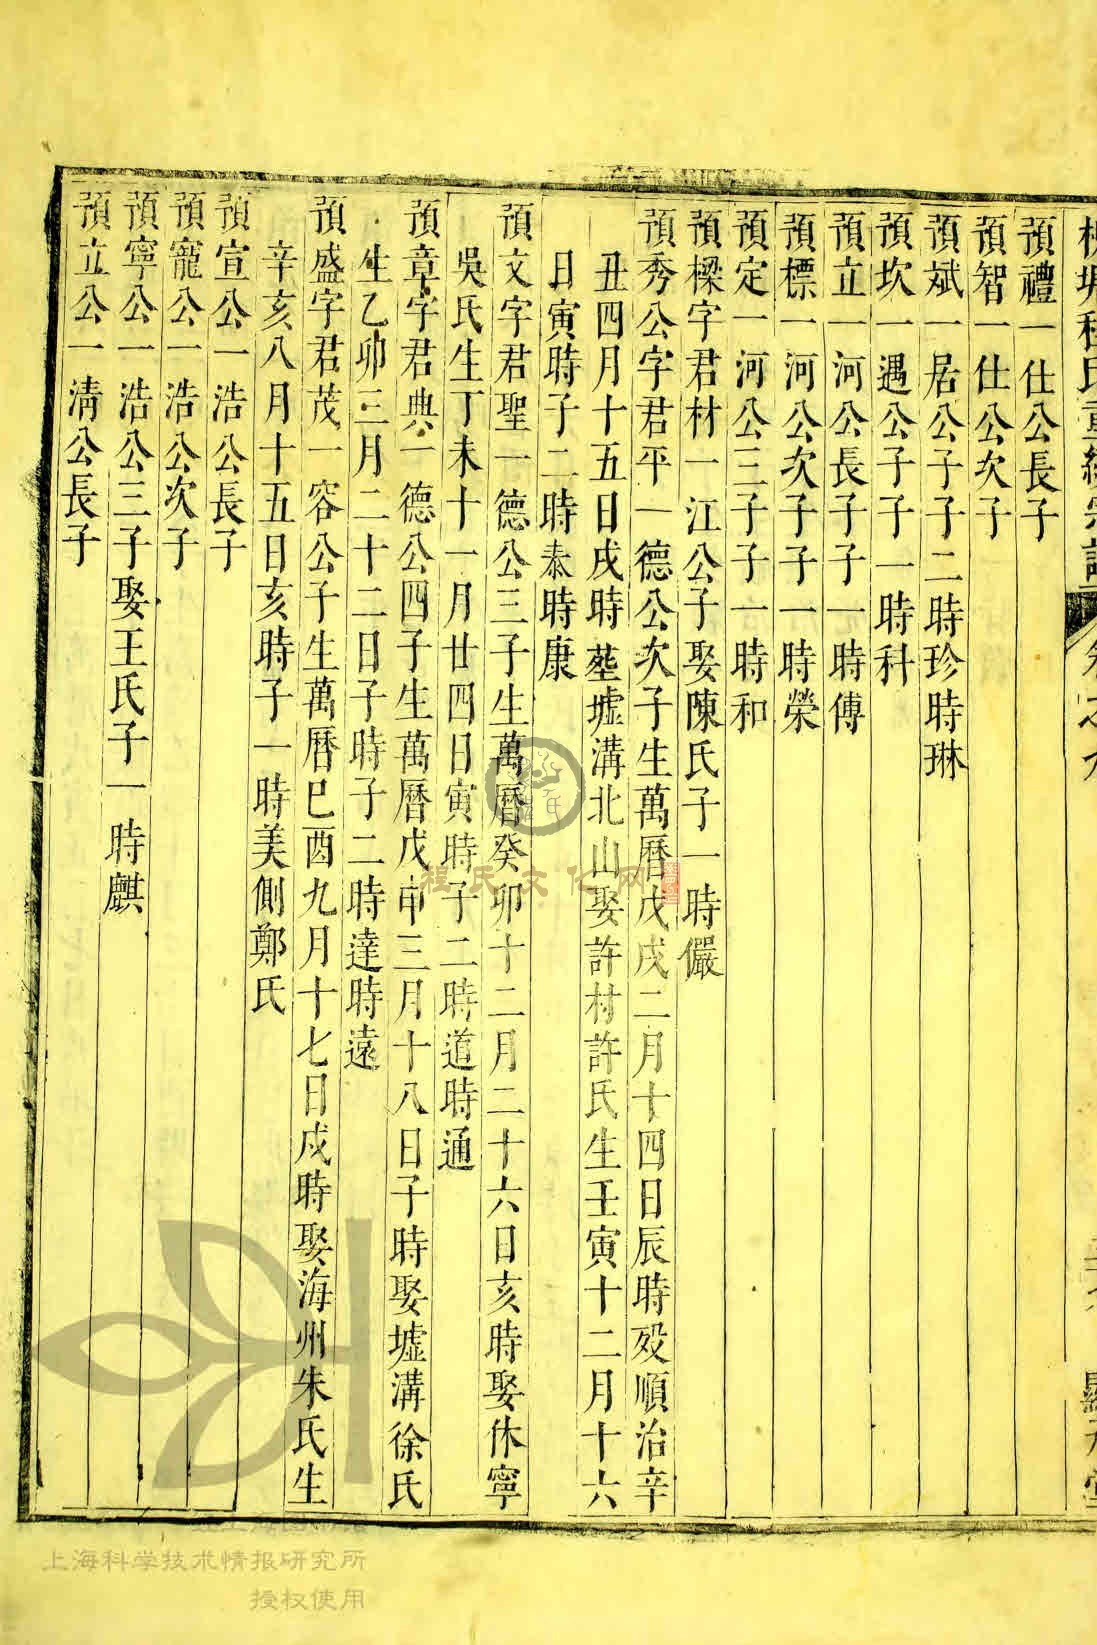 預禮一仕公長子
預智一仕公次子
預斌一居公子子二時珍時琳
預坎一遇公子子一時科
預立一河公長子子一時傅
預標一河公次子子一時榮
預定一河公三子子一時和
預樑字君材一江公子娶陳氏子一時儼
預秀公字君平一德公次子生萬曆戊戌二月十四日辰時歿順治辛
丑四月十五日戌時塟墟溝北山娶許村許氏生壬寅十二月十六
日寅時子二時泰時康
預文字君聖一德公三子生萬曆癸卯十二月二十六日亥時娶休寧
吳氏生丁未十一月廿四日寅時子二時道時通
預章字君典一德公四子生萬曆戊申三月十八日子時娶墟溝徐氏
生乙卯三月二十二日子時子二時達時遠
預盛字君茂一容公子生萬曆巳酉九月十七日戌時娶海州朱氏生
辛亥八月十五日亥時子一時美側鄭氏
預宣公一浩公長子
預寵公一浩公次子
預寧公一浩公三子娶王氏子一時麒
預立公一淸公長子
程氏文化网
上海科学技术情报研究所
授权使用